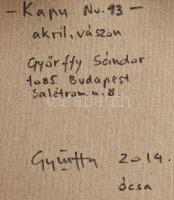 - Kapu No. 93 -
akril, vászon
Győrffy Sándor
1085 Budapest
Salétrom u. 8.
Győrffy 2014.
ócsa